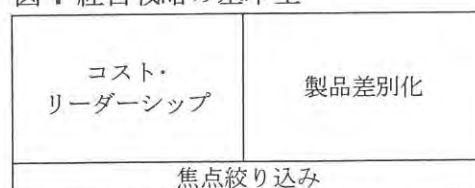 コスト・
リーダーシップ
製品差別化
焦点絞り込み